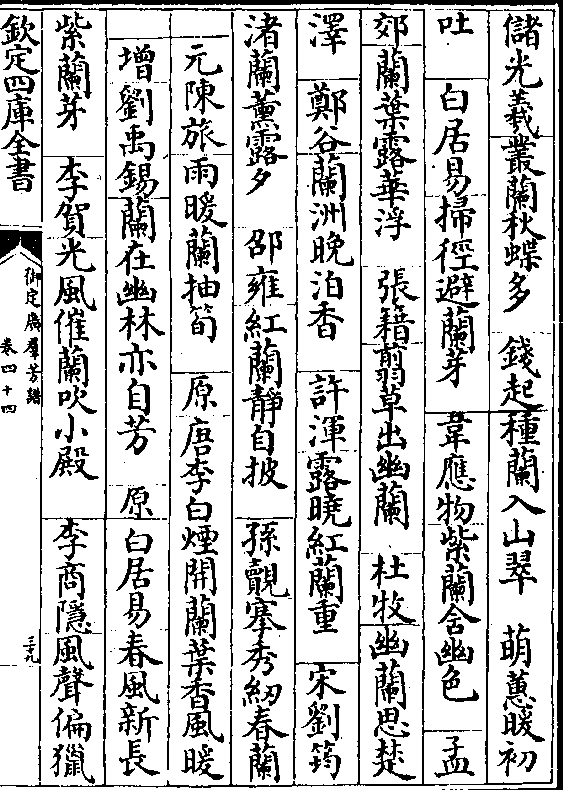 儲光羲叢蘭秋蝶多　錢起種蘭入山翠　萌蕙暖初
吐　白居易掃徑避蘭芽　韋應物紫蘭含幽色　孟
郊蘭葉露華浮　張籍翦草出幽蘭　杜牧幽蘭思楚
澤　鄭谷蘭洲晚泊香　許渾露曉紅蘭重　宋劉筠
渚蘭薰露夕　邵雍紅蘭靜自披　孫覿搴秀紉春蘭
元陳旅雨暖蘭抽筍　原唐李白煙開蘭葉香風暖
增劉禹錫蘭在幽林亦自芳　原白居易春風新長
紫蘭芽　李賀光風催蘭吹小殿　李商隱風聲偏獵
欽定四庫全書
御定廣羣芳譜
卷四十四
三九